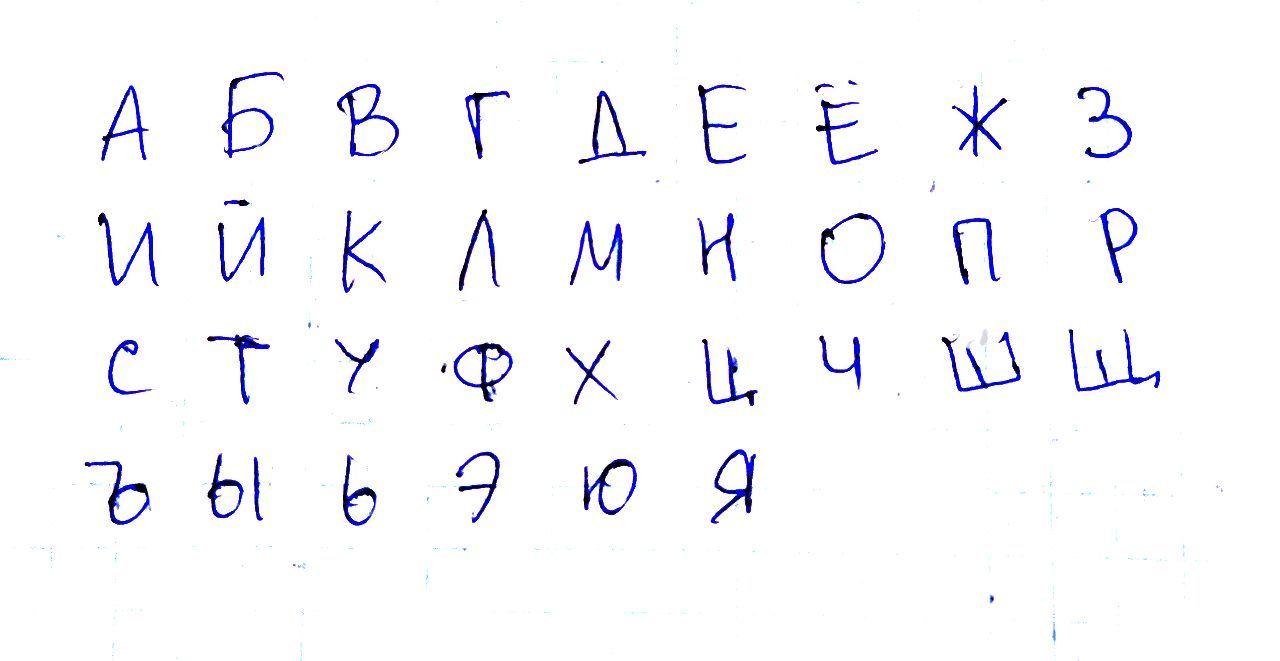 А Б В Г Д Е Ё Ж З
И Й К Л М Н О П Р
С Т У Ф Х Ц Ч Ш Щ
Ъ Ы Ь Э Ю Я